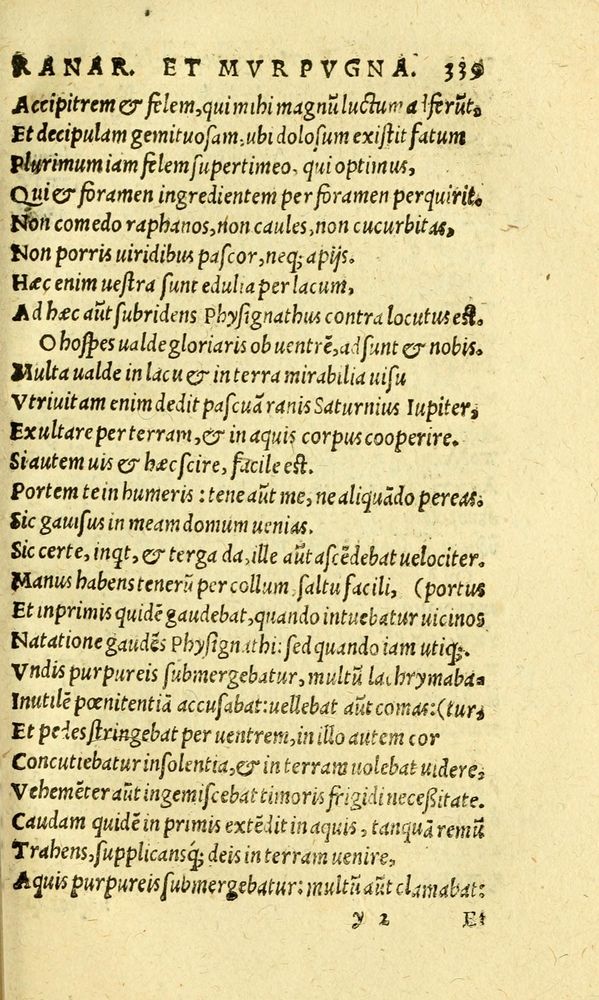 RANAR. ET MVRPVGNA. 339
Accipitrem & felem, qui mihi magnũ luctum afferũt,
Et decipulam gemituosam, ubi dolosum existit fatum
Plurimum iam felem supertimeo, qui optimus,
Qui & foramen ingredientem per foramen perquirit.
Non comedo raphanos, non caules, non cucurbitas,
Non porris uiridibus pascor, neq; apijs.
Hæc enim uestra sunt edulia per lacum,
Ad hæc aũt subridens Physignathus contra locutus est.
O hospes ualde gloriaris ob uentrẽ, adsunt & nobis.
Multa ualde in lacu & in terra mirabilia uisu
Vtriuitam enim dedit pascuã ranis Saturnius Iupiter,
Exultare per terram, & in aquis corpus cooperire.
Si autem uis & hæc scire, facile est.
Portem te in humeris: tene aũt me, ne aliquãdo pereas.
Sic gauisus in meam domum uenias.
Sic certe, inqt, & terga da, ille aũt ascẽdebat uelociter.
Manus habens tenerũ per collum saltu facili, (portus
Et inprimis quidẽ gaudebat, quando intuebatur uicinos
Natatione gaudẽs Physignathi: sed quando iam utiq;.
Vndis purpureis submergebatur, multũ lachrymaba-
Inutilẽ pœnitentiã accusabat: uellebat aũt comas: (tur,
Et pedes stringebat per uentrem, in illo autem cor
Concutiebatur insolentia, & in terram uolebat uidere,
Vehemẽter aũt ingemiscebat timoris frigidi necessitate.
Caudam quidẽ in primis extẽdit in aquis, tanquã remũ
Trahens, supplicansq; deis in terram uenire,
Aquis purpureis submergebatur: multũ aũt clamabat:
y 2 Et